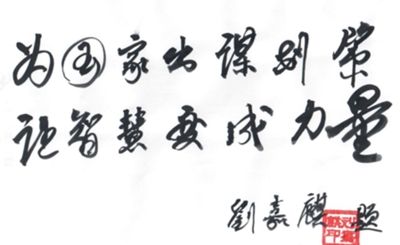 为国家出谋划策
让智慧变成力量
劉嘉麒题